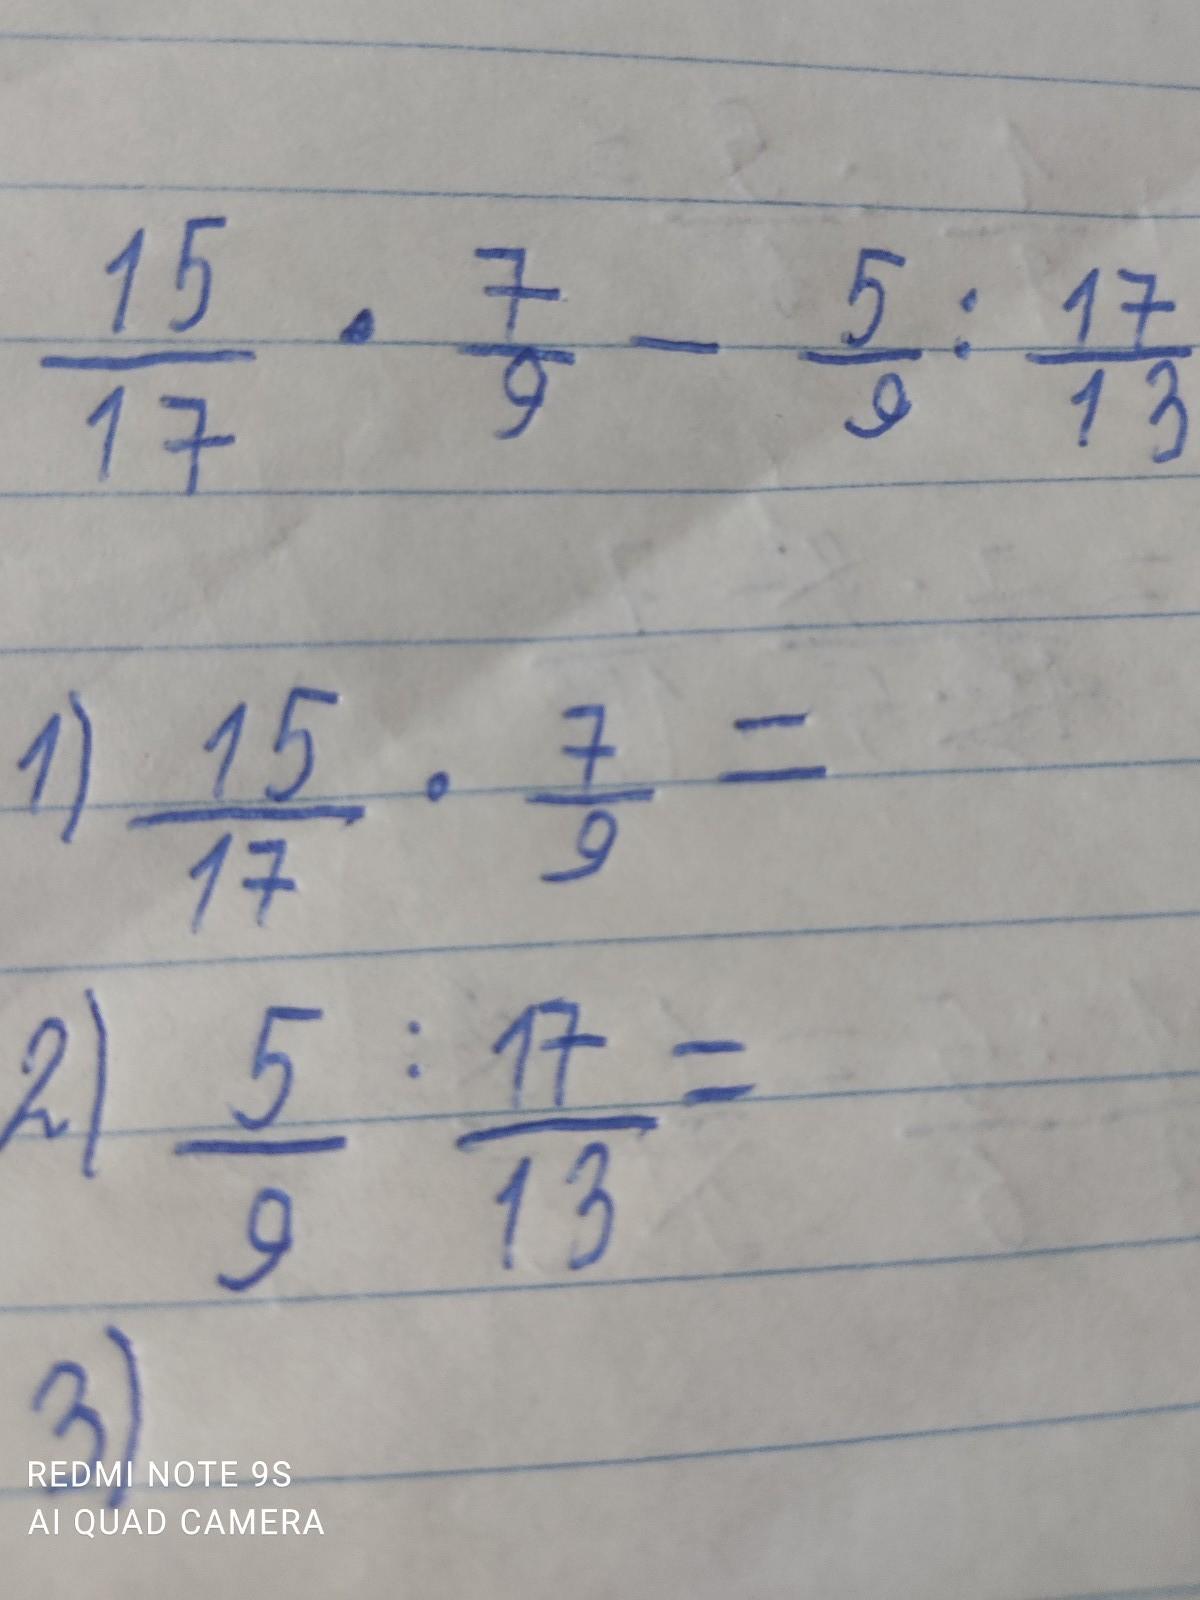 15/17 · 7/9 − 5/9 : 17/13
1) 15/17 · 7/9 =
2) 5/9 : 17/13 =
3)
REDMI NOTE 9S
AI QUAD CAMERA